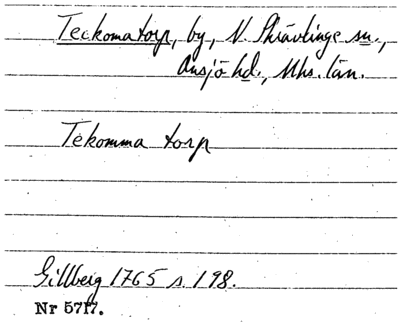 Teckomatorp, by, N. Skrävlinge sn.,
Onsjö hd., Mhs. län.
Tekomma torp
Gillberg 1765 s. 198.
Nr 5717.